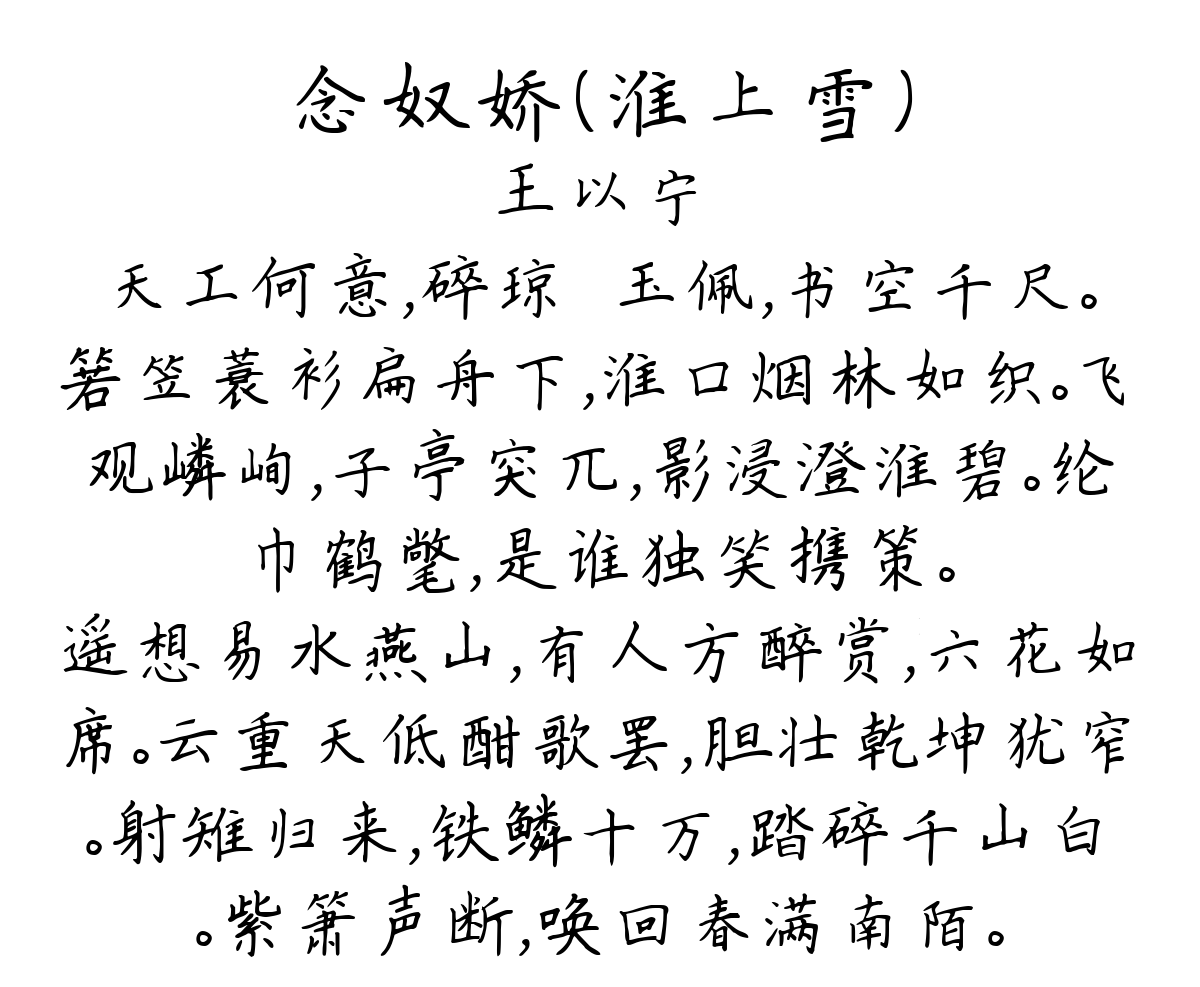 念奴娇(淮上雪)
王以宁
天工何意,碎琼 玉佩,书空千尺。
箬笠蓑衫扁舟下,淮口烟林如织。飞
观嶙峋,子亭突兀,影浸澄淮碧。纶
巾鹤氅,是谁独笑携策。
遥想易水燕山,有人方醉赏,六花如
席。云重天低酣歌罢,胆壮乾坤犹窄
。射雉归来,铁鳞十万,踏碎千山白
。紫箫声断,唤回春满南陌。